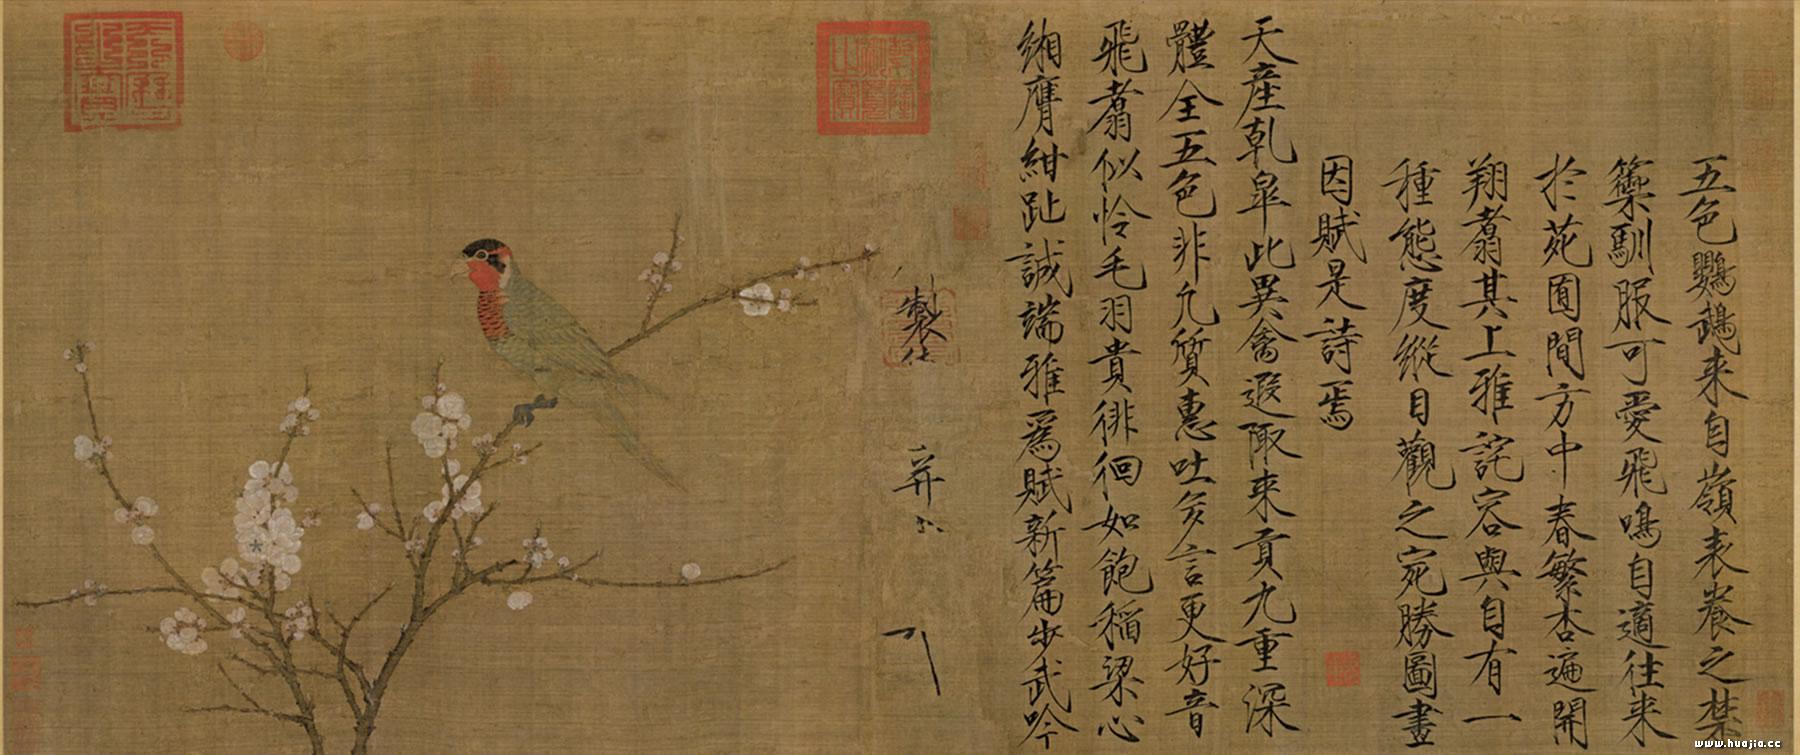 五色鸚鵡来自嶺表養之禁
籞馴服可愛飛鳴自適往来
於苑囿間方中春繁杏遍開
翔翥其上雅詫容與自有一
種態度縱目觀之宛勝圖畫
因賦是詩焉
天産乾皐此異禽遐陬来貢九重深
體全五色非凡質惠吐多言更好音
飛翥似怜毛羽貴徘徊如飽稲粱心
緗膺紺趾誠端雅為賦新篇步武吟
製
www.huajia.cc